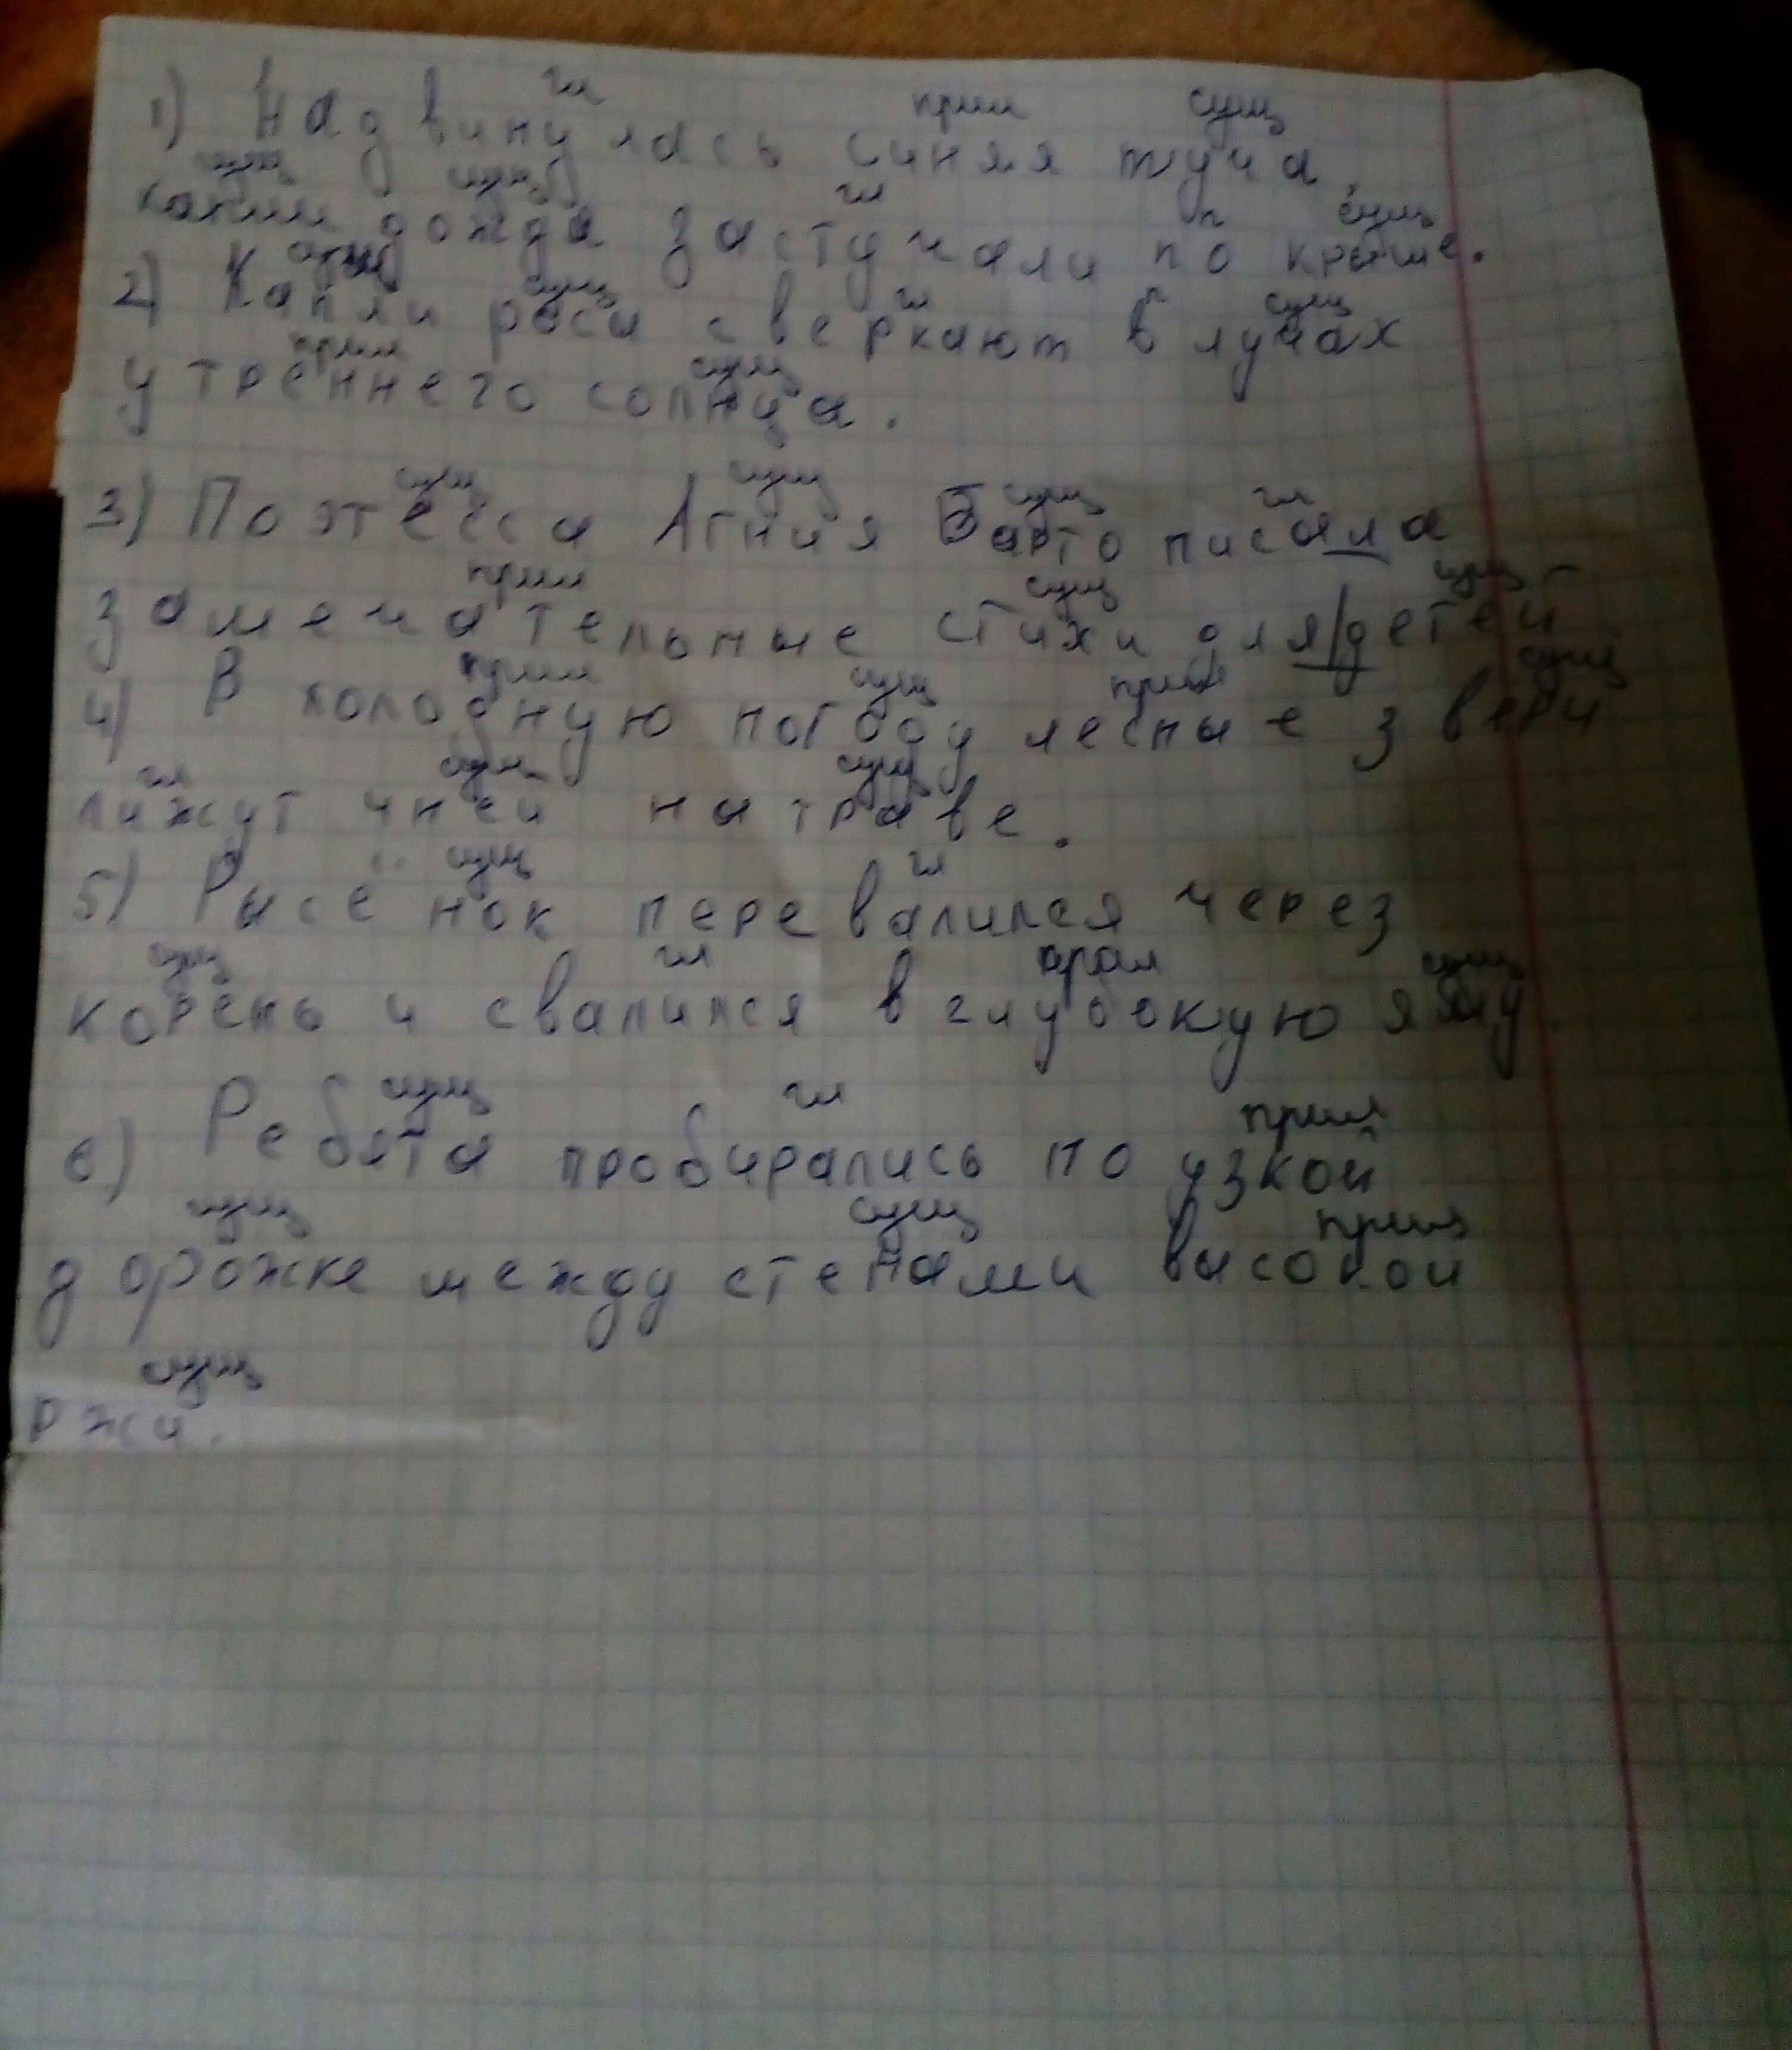 гл прил сущ
1) Надвинулась синяя туча,
сущ сущ гл п сущ
капли дождя застучали по крыше.
сущ сущ гл п сущ
2) Капли росы сверкают в лучах
прил сущ
утреннего солнца.
сущ сущ сущ гл
3) Поэтесса Агния Барто писала
прил сущ сущ
замечательные стихи для/детей
прил сущ прил сущ
4) В холодную погоду лесные звери
гл сущ сущ
лижут иней на траве.
сущ гл
5) Рысёнок перевалился через
сущ гл прил сущ
корень и свалился в глубокую яму.
сущ гл прил
6) Ребята пробирались по узкой
сущ сущ прил
дорожке между стенами высокой
сущ
ржи.